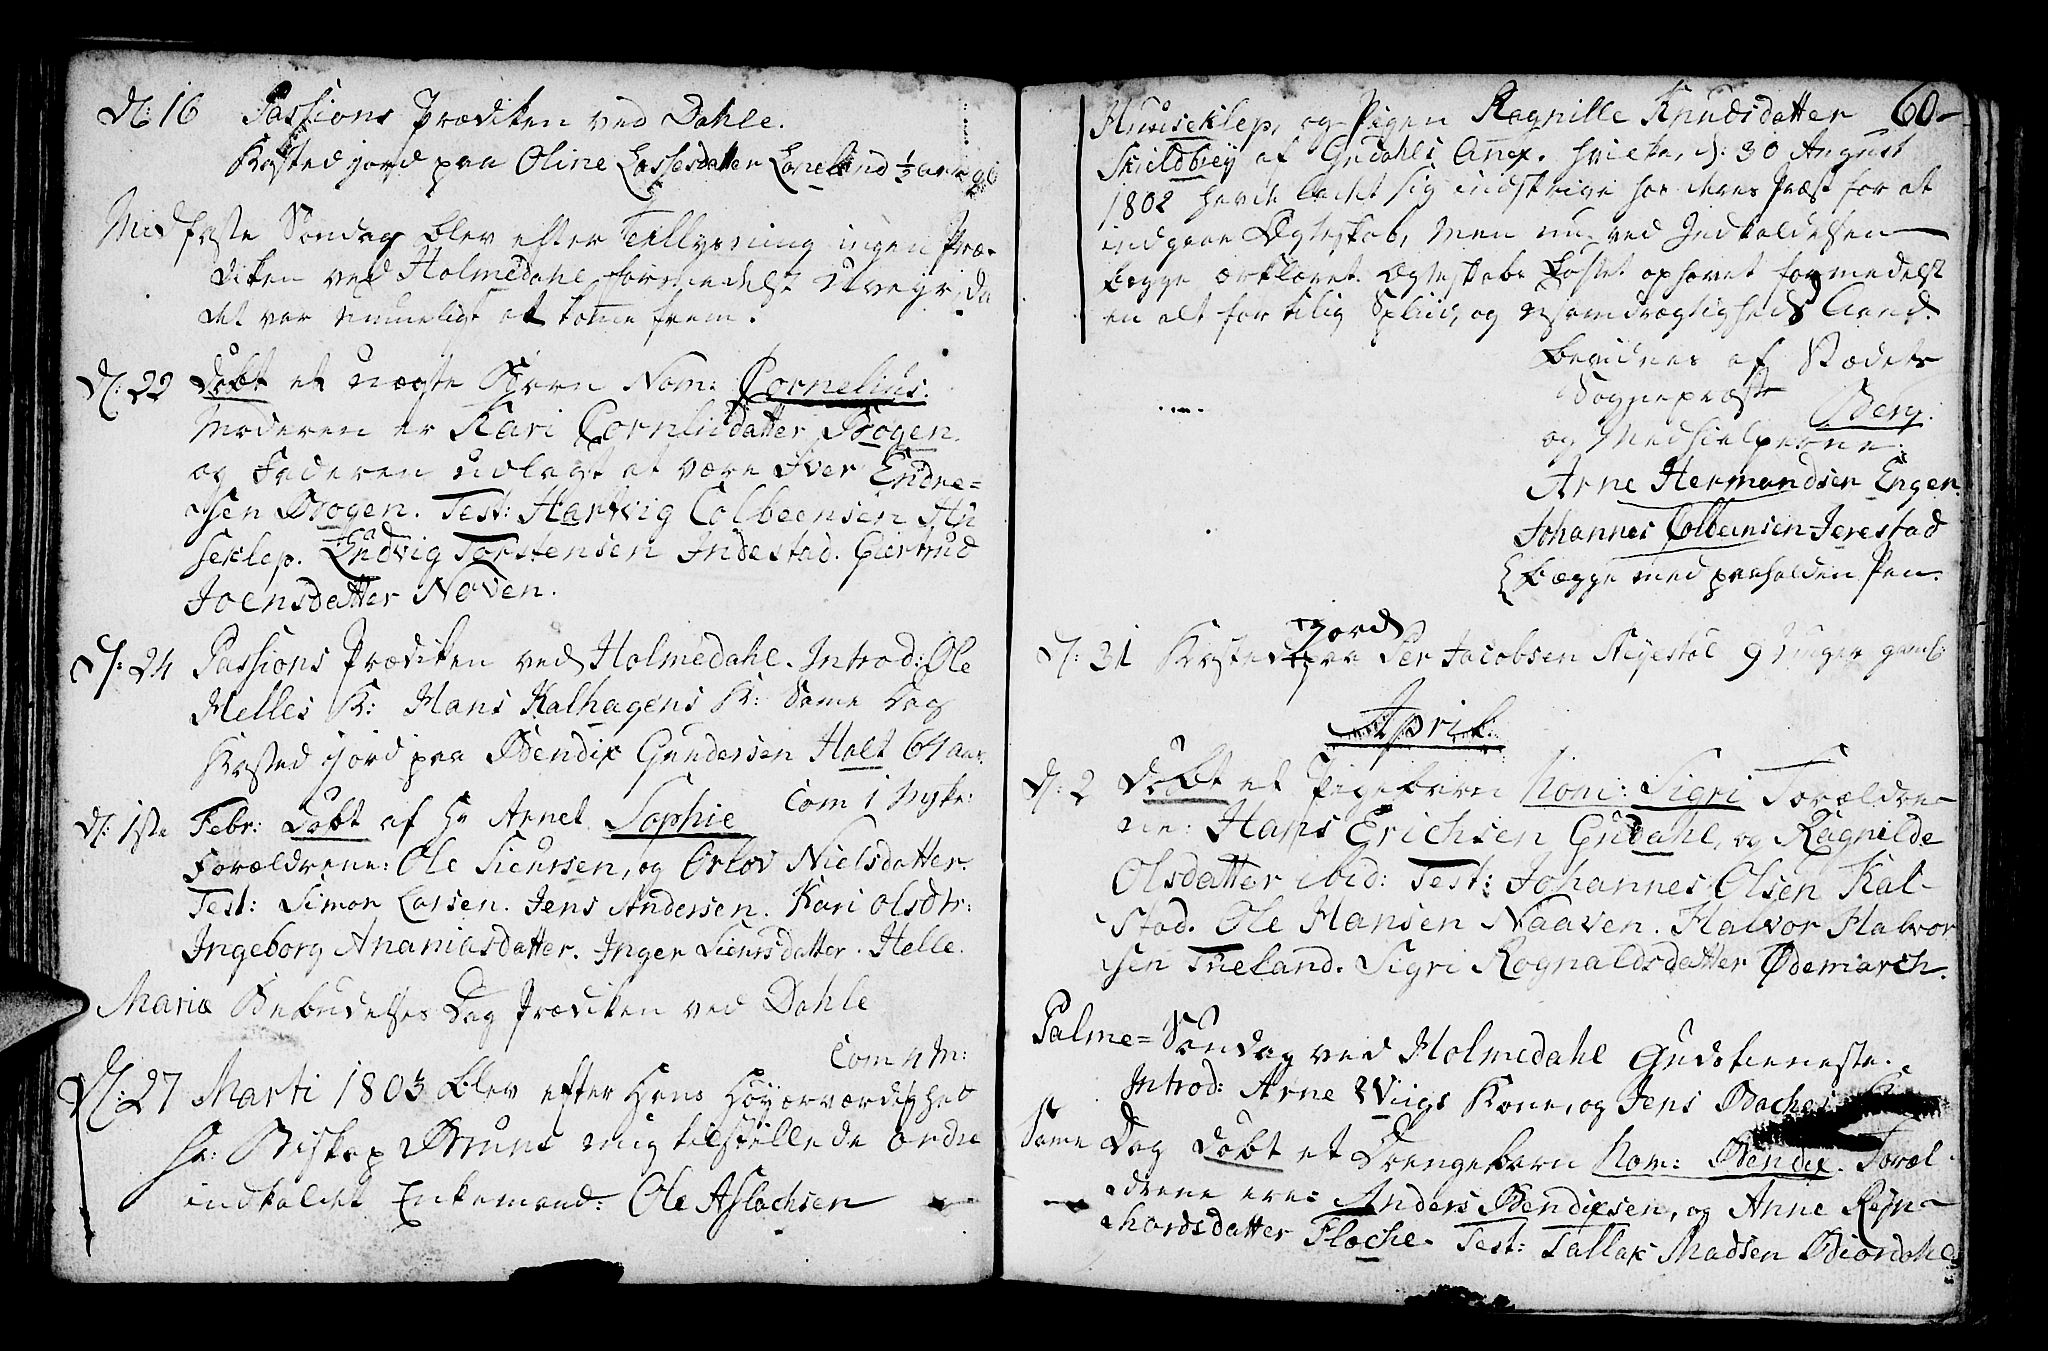 D: 16 Passions Prædiken ved Dahle.
Kasted jord paa Oline Lassesdatter Loneland ½ aar gl
Midfaste Søndag blev efter Tillysning ingen Præ-
diken ved Holmedahl formedelst Uveyr, da
det var umueligt at komme frem.
D: 22 Døbt et uægte Barn Nom: Cornelius.
Moderen er Kari Cornlisdatter Schogen.
og Faderen udlagt at være Iver Endre=
sen Schogen. Test: Hartvig Colbeensen Hu
seklep. Ludvig Torstensen Indestad. Giertrud
Joensdatter Noven.
D: 24 Passions Prædiken ved Holmedahl. Introd: Ole
Helles K: Hans Kalhagens K: Same Dag
Kasted jord paa Bendix Gundersen Holt 64 aar.
Com 1
D: 1ste Febr: Døbt af Hr Arnet Sophie
Forældrene: Ole Siursen, og Orlov Nielsdatter.
Test: Simon Larsen. Jens Andersen. Kari Olsdtr:
Ingeborg Ananiasdatter. Inger Siursdatter. Helle.
Mariæ Bebudelses Dag Prædiken ved Dahle
Com 4 M:
D: 27 Marti 1803 blev efter Hans Høyærværdighed
Hr: Biskop Bruns mig tilstillede Ordre
indkaldet Enkemand: Ole Aslachsen
60
Huuseklep, og Pigen Ragnille Knudsdatter
Skieldbrey af Guldahls Annex. hvilke, d: 30 August
1802 havde ladet sig indskrive hos deres Præst for at
indgaae Ægteskab, men nu ved Indkaldelsen
begge erklæret Ægteskabs Løftet ophævet formedelst
en alt for tilig Spliid, og Usamdrægtigheds Aand.
Bevidnes af Stædets
Sognepræst
Berg.
og Medhielperne:
Arne Hermundsen Engen.
Johannes Colbensen Jerestad
begge med paaholden Pen.
D: 31 Kasted jord paa Per Jacobsen Nyestøl 9 Uuger gaml:
April.
D: 2 Døbt et Pigebarn Nom: Sigri Forældre-
ne: Hans Erichsen Gudahl, og Ragnilde
Olsdatter ibid: Test: Johannes Olsen Kal-
stad. Ole Hansen Naaven. Halvor Halvor
sen Treland. Sigri Rognaldsdatter Ødemarch.
Palme= Søndag ved Holmedahl Gudstieneste.
Introd: Arne Wiigs Kone, og Jens Baches
Same Dag døbt et Drengebarn Nom: Bendix. Foræl
drene ere: Anders Bendixsen, og Anne Rejn-
hardsdatter Floche. Test: Tallak Madsen Biordahl